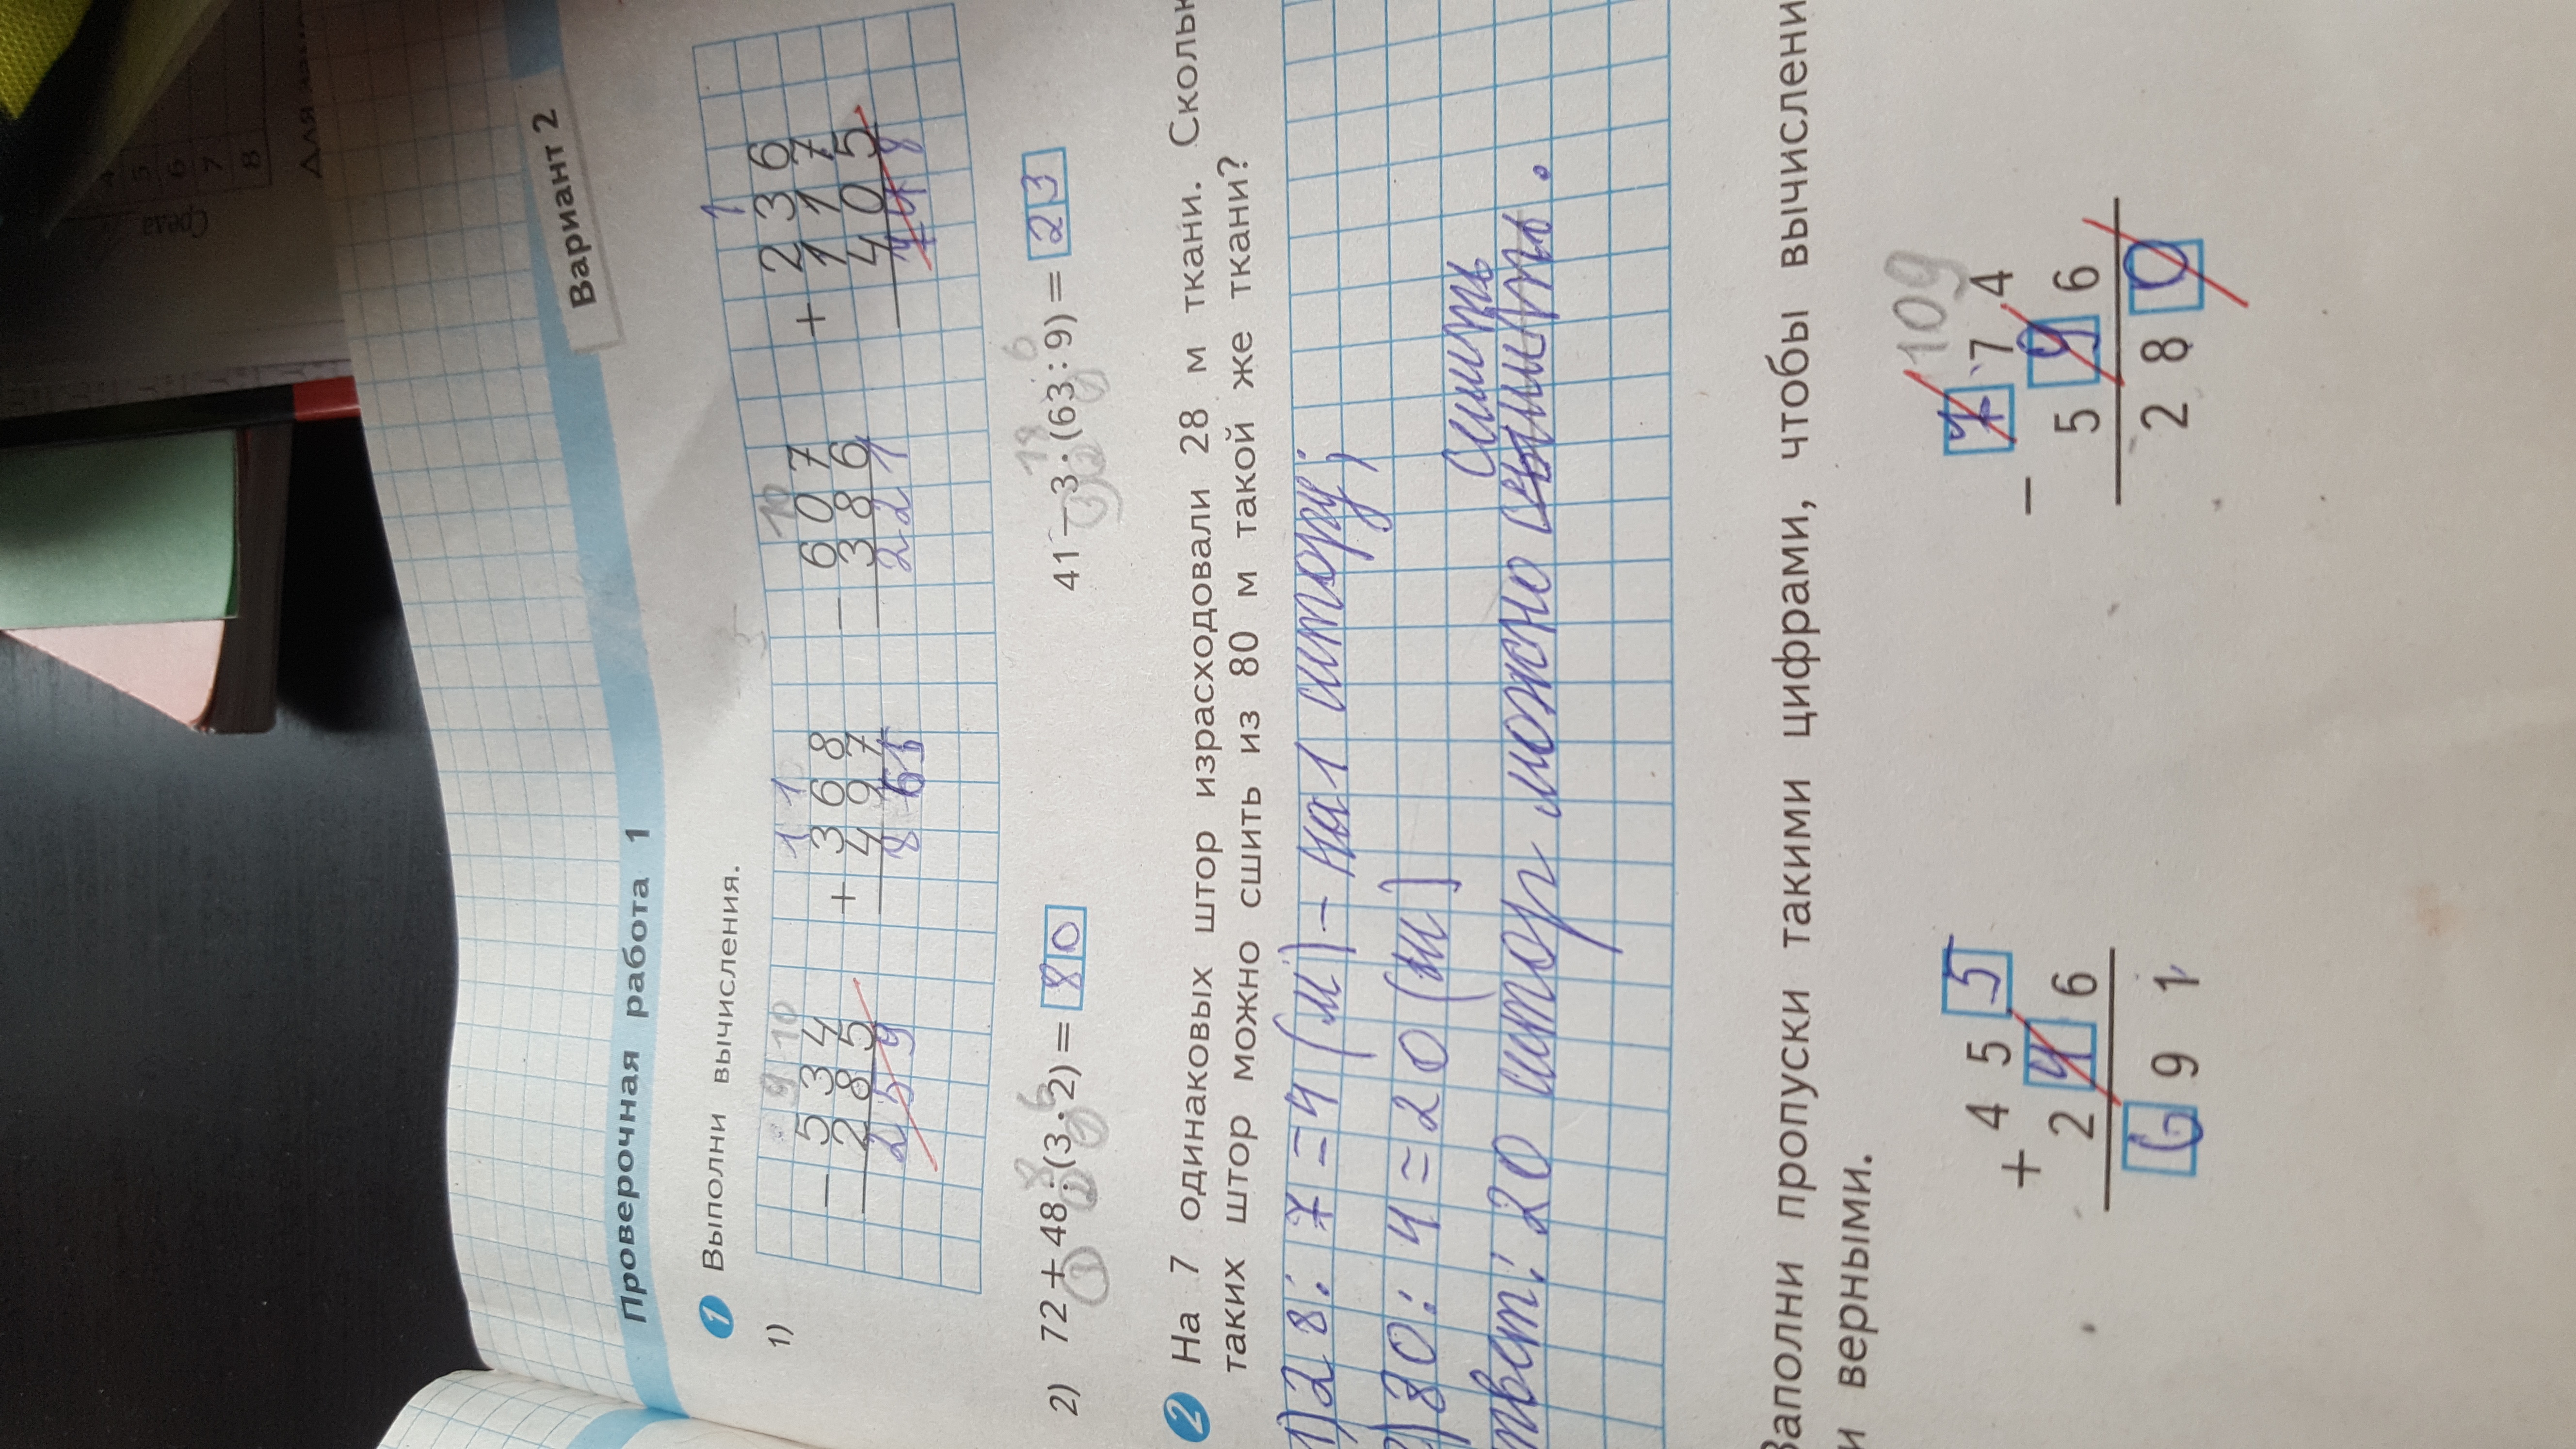 Проверочная работа 1
Вариант 2
1 Выполни вычисления.
1)
9 10 1 1 10 1
− 534 + 368 − 607 + 236
285 497 386 117
259 865 221 405
748
2) 72 + 48 : (3 · 2) = 80 41 − 3 · (63 : 9) = 23
2 На 7 одинаковых штор израсходовали 28 м ткани. Сколь
таких штор можно сшить из 80 м такой же ткани?
1) 28 : 7 = 4 (м) – на 1 штору;
) 80 : 4 = 20 (ш)
сшить
твет: 20 штор можно сшить.
Заполни пропуски такими цифрами, чтобы вычислени
и верными.
109
+ 455 − 774
246 596
691 280
Среда
5
6
7
8